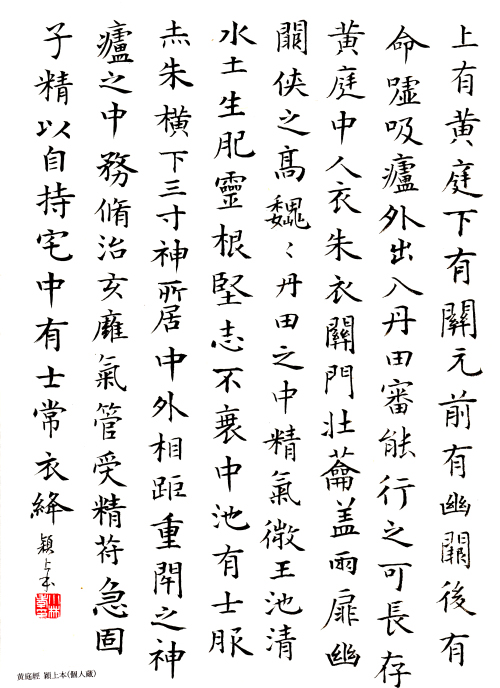 上有黄庭下有關元前有幽闕後有
命噓吸廬外出入丹田審能行之可長存
黄庭中人衣朱衣關門壮蘥盖兩扉幽
闕俠之髙巍〻丹田之中精氣微玉池清
水土生肥靈根堅志不衰中池有士服
赤朱横下三寸神所居中外相距重閇之神
廬之中務脩治玄廱氣管受精苻急固
子精以自持宅中有士常衣絳
穎上本
黄庭經 穎上本(個人蔵)